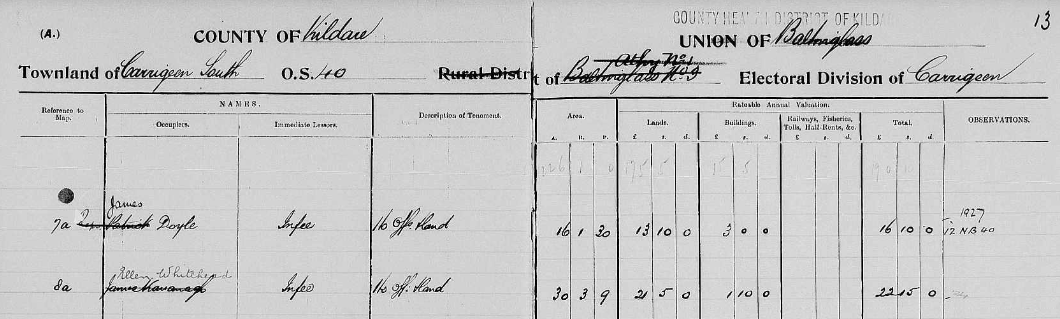 COUNTY HEALTH DISTRICT OF KILDARE
13
(A.) COUNTY OF Kildare UNION OF Baltinglass
Athy No 1
Townland of Carrigeen South O.S. 40 Rural District of Baltinglass No 3 Electoral Division of Carrigeen
Reference to Map. NAMES. Description of Tenement. Area. Rateable Annual Valuation. OBSERVATIONS.
Occupiers. Immediate Lessors. Lands. Buildings. Railways, Fisheries, Tolls, Half-Rents, &c. Total.
A. R. P. £ s. d. £ s. d. £ s. d. £ s. d.
James
7a Patrick Doyle Infee Ho Offs Land 16 1 30 13 10 0 3 0 0 16 10 0 1927
12 NB 40
Ellen Whitehead
8a James Kavanagh Infee Ho Offs Land 30 3 9 21 5 0 1 10 0 22 15 0